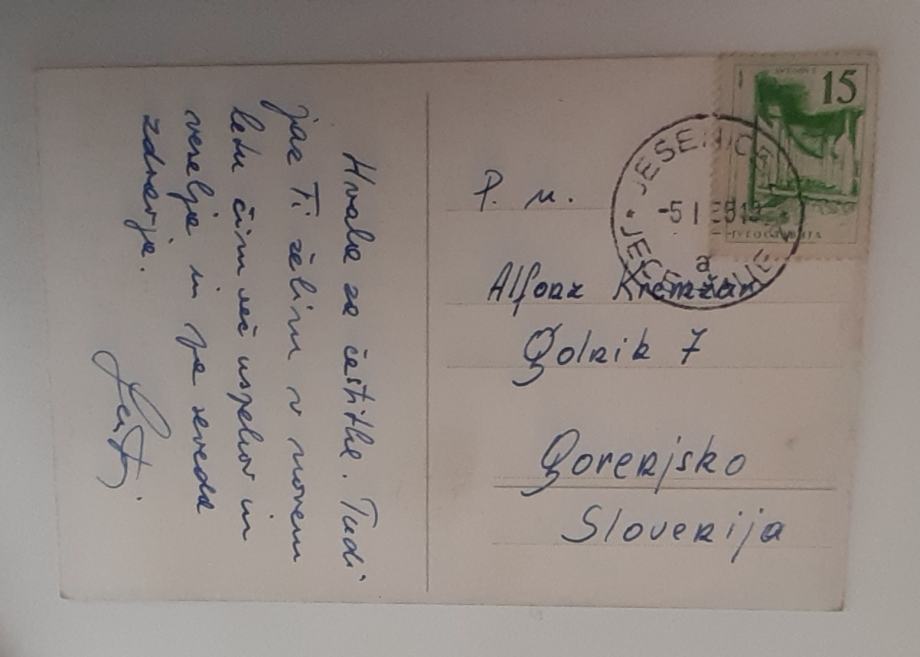 Hvala za čestitke. Tudi
jaz Ti želim v novem
letu čim več uspehov in
veselja in pa seveda
zdravja.
P. n.
Alfonz Kremžar
Golnik 7
Gorenjsko
Slovenija
15
JUGOSLAVIJA
JESENICE
-5 I
a
ЈЕСЕНИЦЕ